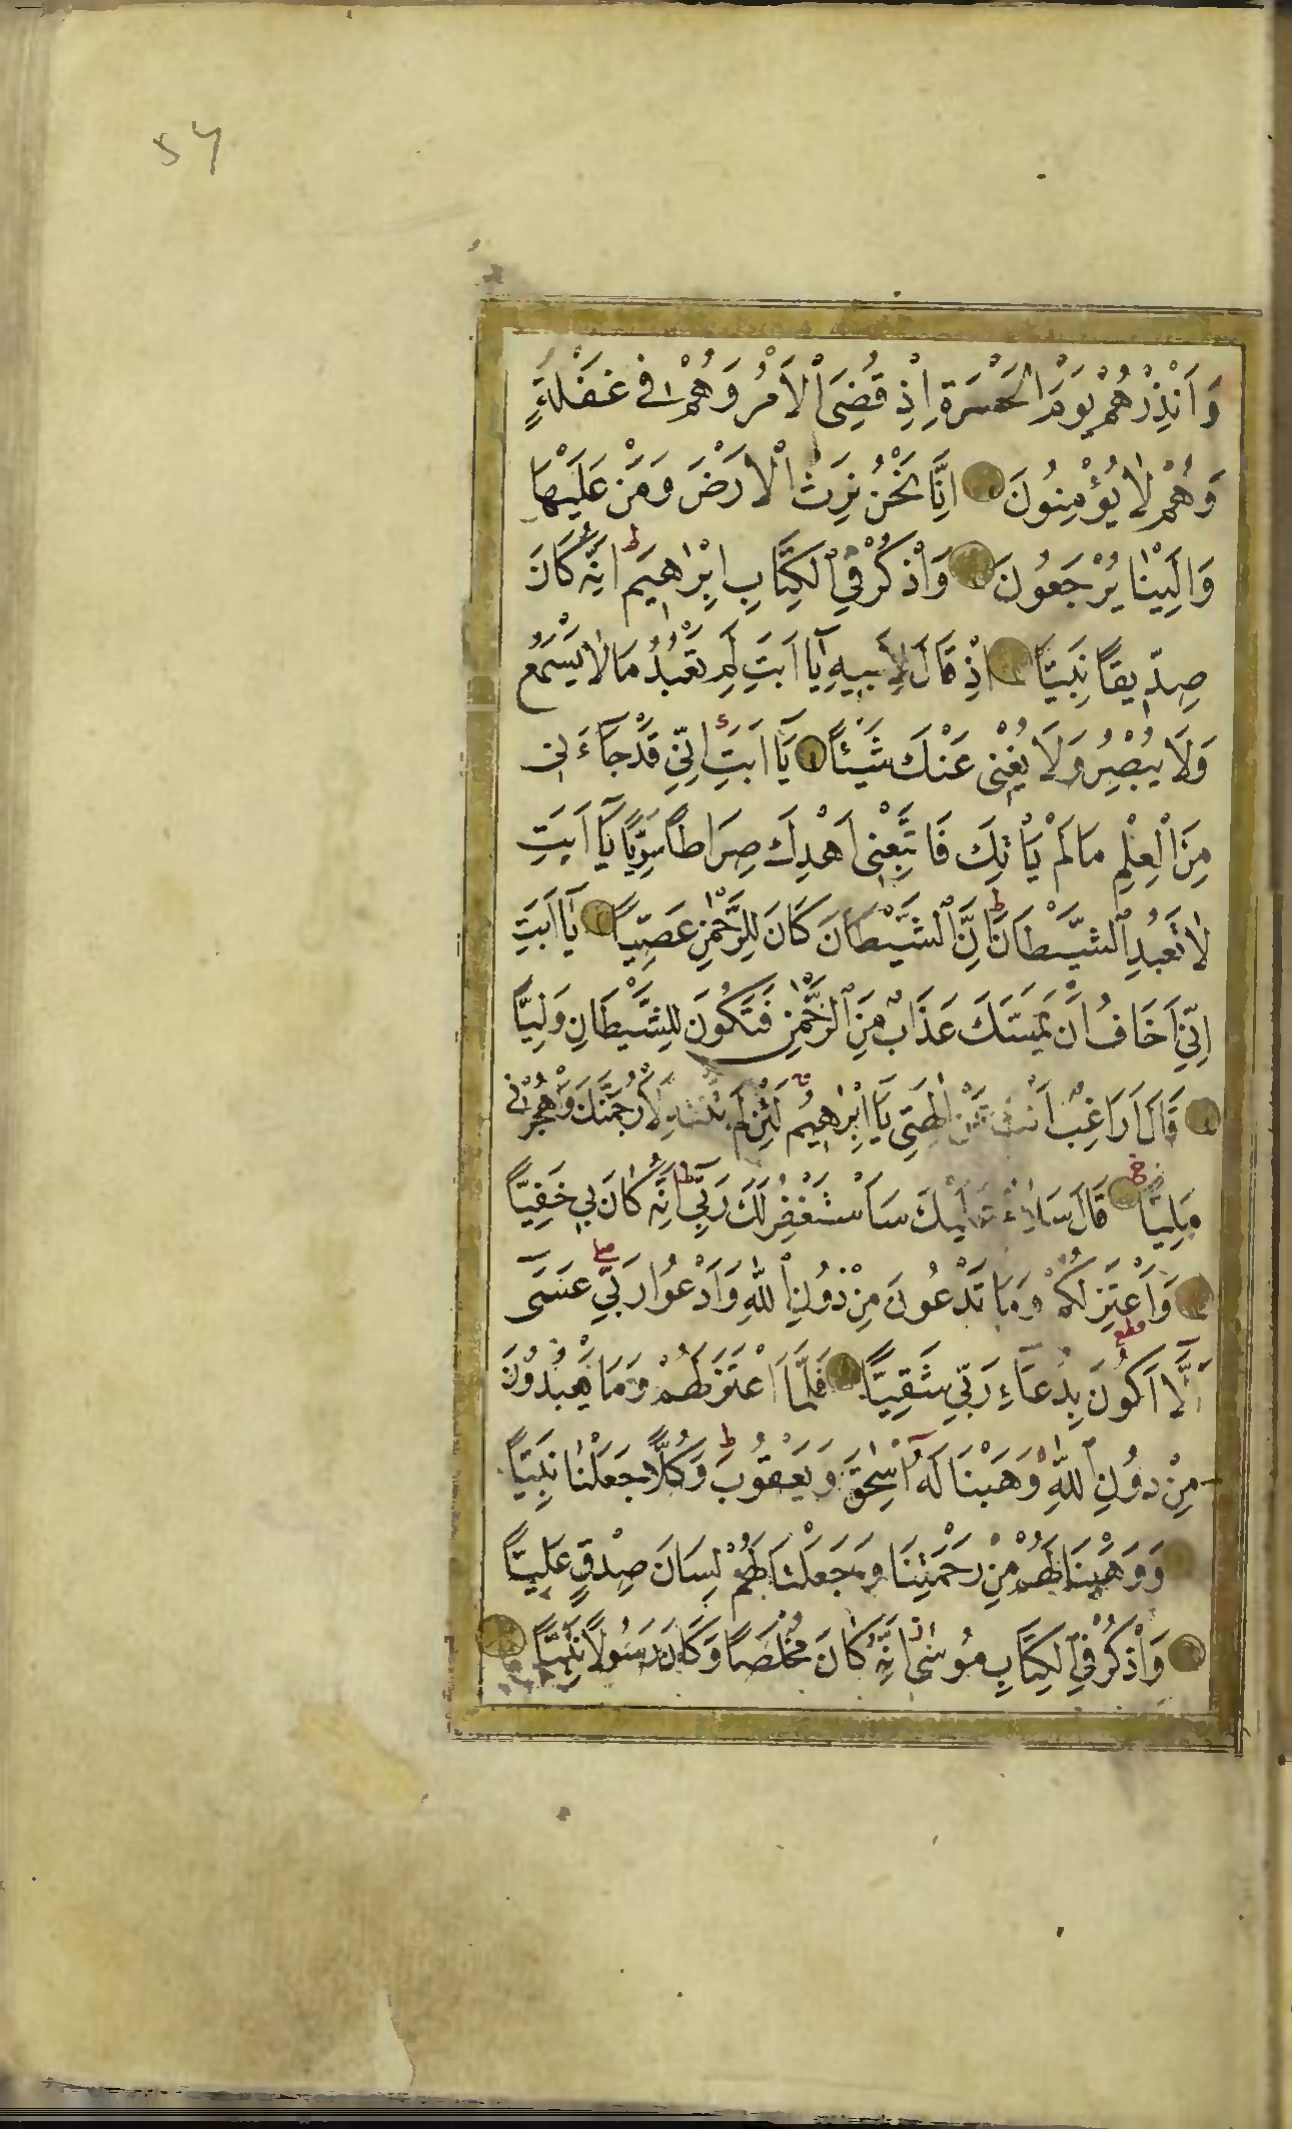 54
وَاَنْذِرْهُمْ يَوْمَ الْحَسْرَةِ اِذْ قُضِىَ الْاَمْرُ وَهُمْ فى غَفْلَةٍ
وَهُمْ لَا يُؤْمِنُونَ اِنَّا نَحْنُ نَرِثُ الْاَرْضَ وَمَنْ عَلَيْهَا
وَاِلَيْنَا يُرْجَعُونَ وَاذْكُرْ فِى الْكِتَابِ اِبْرٰهِيمَ ط اِنَّهُ كَانَ
صِدِّيقًا نَبِيًّا اِذْ قَالَ لِاَبِيهِ يَا اَبَتِ لِمَ تَعْبُدُ مَا لَا يَسْمَعُ
وَلَا يُبْصِرُ وَلَا يُغْنِى عَنْكَ شَيْئًا يَا اَبَتِ اِنِّى قَدْ جَاءَنِى
مِنَ الْعِلْمِ مَا لَمْ يَاْتِكَ فَاتَّبِعْنِى اَهْدِكَ صِرَاطًا سَوِيًّا يَا اَبَتِ
لَا تَعْبُدِ الشَّيْطَانَ ط اِنَّ الشَّيْطَانَ كَانَ لِلرَّحْمٰنِ عَصِيًّا يَا اَبَتِ
اِنِّى اَخَافُ اَنْ يَمَسَّكَ عَذَابٌ مِنَ الرَّحْمٰنِ فَتَكُونَ لِلشَّيْطَانِ وَلِيًّا
قَالَ اَرَاغِبٌ اَنْتَ عَنْ اٰلِهَتِى يَا اِبْرٰهِيمُ لَئِنْ لَمْ تَنْتَهِ لَاَرْجُمَنَّكَ وَاهْجُرْنِى
مَلِيًّا قَالَ سَلَامٌ عَلَيْكَ سَاَسْتَغْفِرُ لَكَ رَبِّى ط اِنَّهُ كَانَ بِى حَفِيًّا
وَاَعْتَزِلُكُمْ وَمَا تَدْعُونَ مِنْ دُونِ اللّٰهِ وَاَدْعُوا رَبِّى صلى عَسَى
اَلَّا اَكُونَ بِدُعَاءِ رَبِّى شَقِيًّا فَلَمَّا اعْتَزَلَهُمْ وَمَا يَعْبُدُونَ
مِنْ دُونِ اللّٰهِ وَهَبْنَا لَهُ اِسْحٰقَ وَيَعْقُوبَ ط وَكُلًّا جَعَلْنَا نَبِيًّا
وَوَهَبْنَا لَهُمْ مِنْ رَحْمَتِنَا وَجَعَلْنَا لَهُمْ لِسَانَ صِدْقٍ عَلِيًّا
وَاذْكُرْ فِى الْكِتَابِ مُوسٰى اِنَّهُ كَانَ مُخْلَصًا وَكَانَ رَسُولًا نَبِيًّا